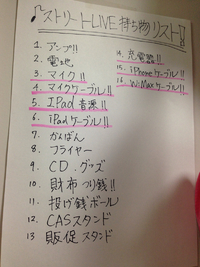 ♪ストリートLIVE 持ち物リスト!!
1. アンプ!!
2. 電池
3. マイク!!
4. マイクケーブル!!
5. IPad 音源!!
6. iPadケーブル!!
7. かんばん
8. フライヤー
9. CD. グッズ
10. 財布 つり銭!!
11. 投げ銭ボール
12. CASスタンド
13 販促スタンド
14. 充電器!!
15. iPhoneケーブル!!
16 WiMaxケーブル!!